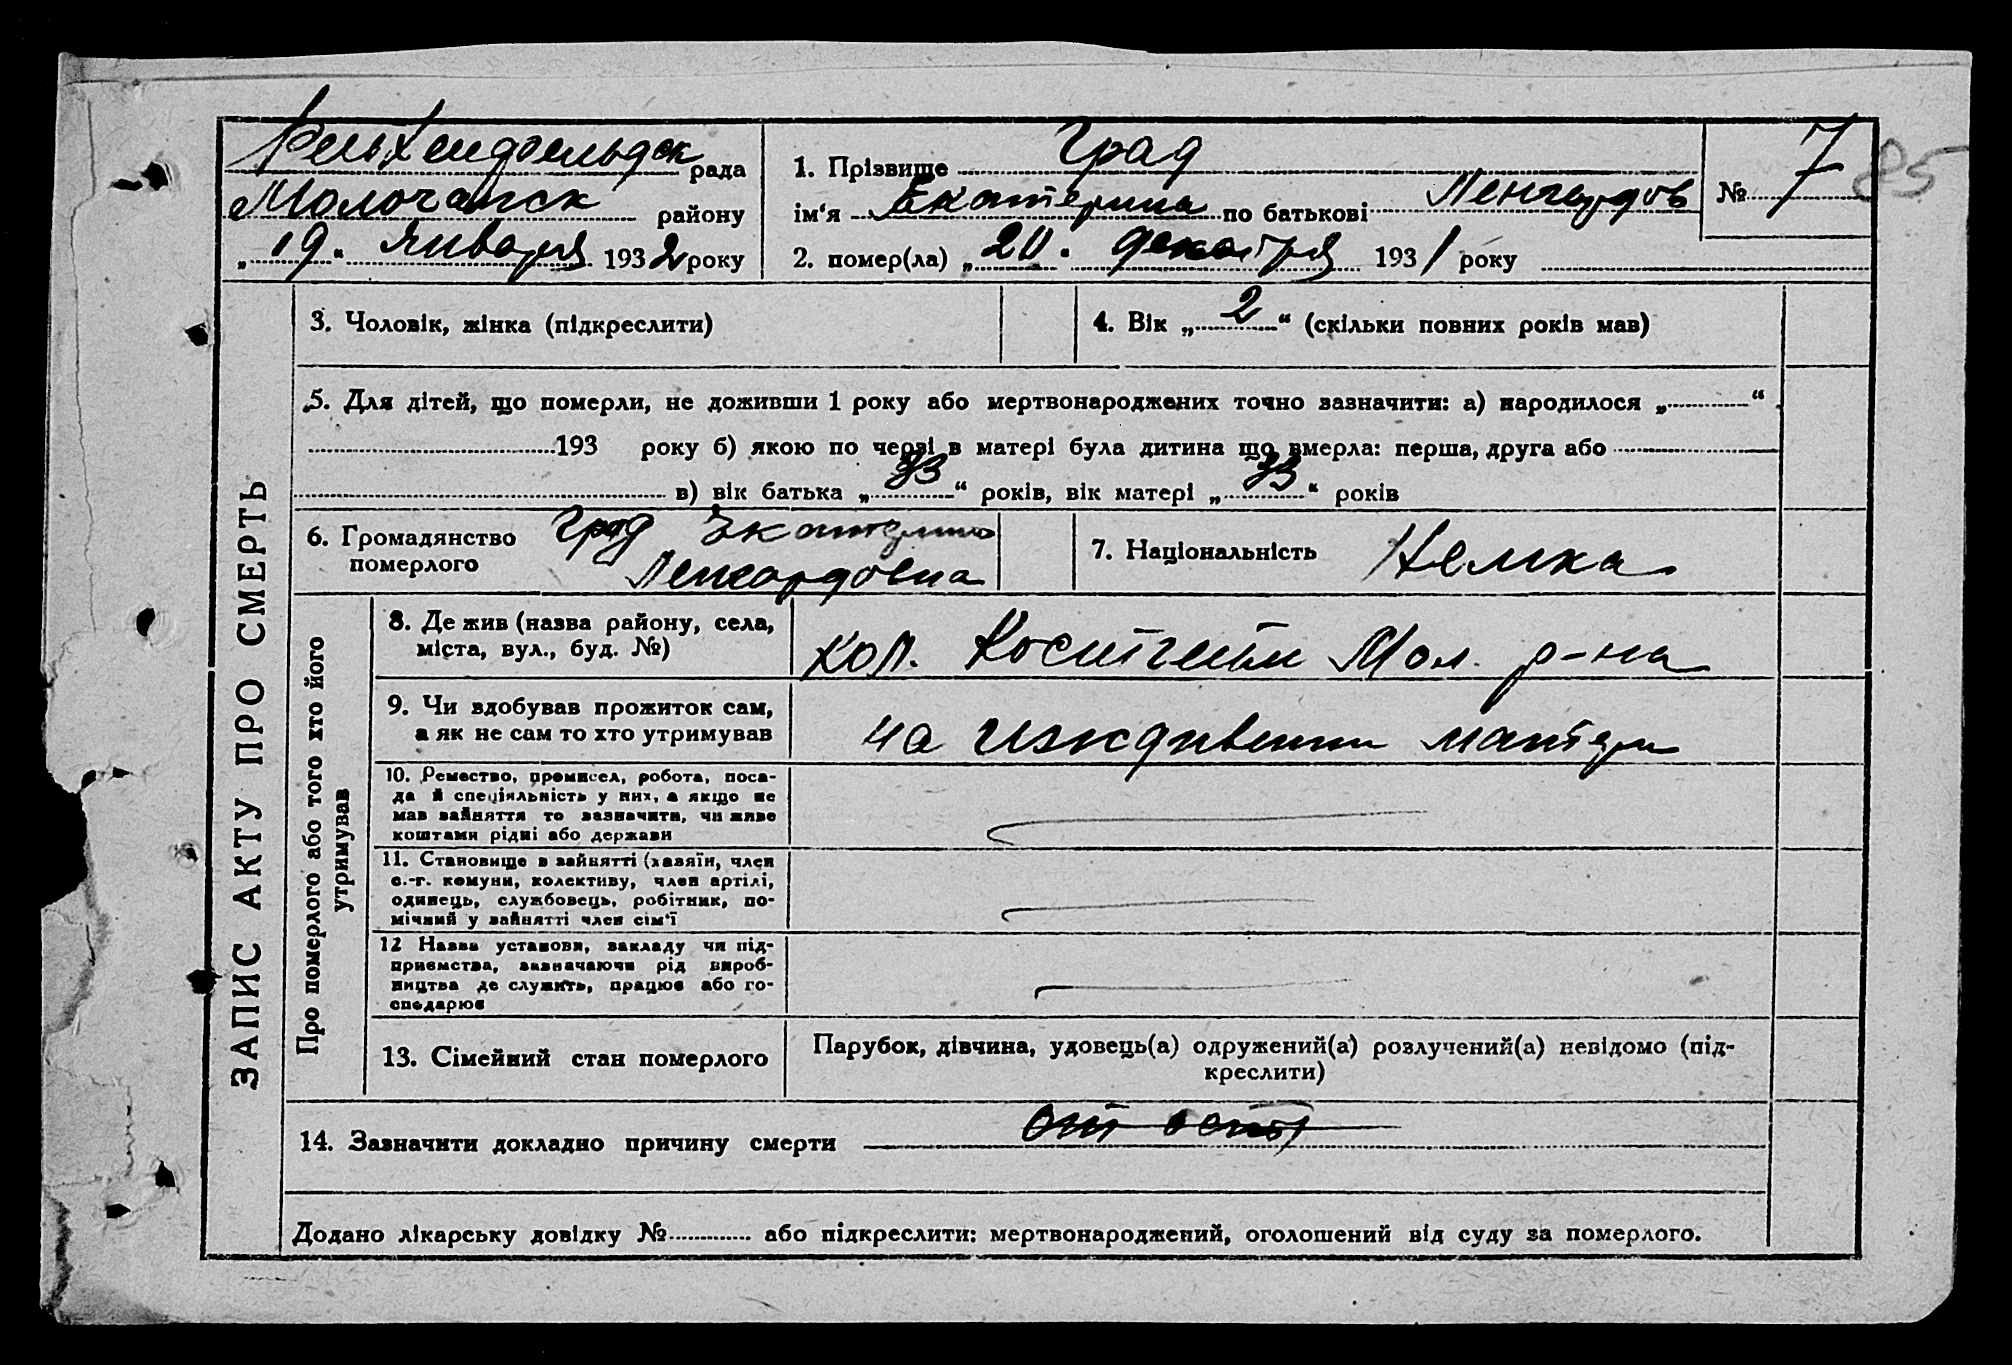 рада
Молочанск району
„19“ Января 1932 року
1. Прізвище Град
ім‘я Екатерина по батькові
2. помер(ла) „20. декабря 1931 року
№ 7
85
ЗАПИС АКТУ ПРО СМЕРТЬ
3. Чоловік, жінка (підкреслити)
4. Вік „2“ (скільки повних років мав)
5. Для дітей, що померли, не доживши 1 року або мертвонароджених точно зазначити: а) народилося „ “
193 року б) якою по черзі в матері була дитина що вмерла: перша, друга або
в) вік батька „33“ років, вік матері „33“ років
6. Громадянство померлого
Град Екатерина
7. Національність Немка
Про померлого або того хто його утримував
8. Де жив (назва району, села,
міста, вул., буд. №)
кол. Мол. р-на
9. Чи здобував прожиток сам,
а як не сам то хто утримував
на иждивении матери
10. Ремество, промисел, робота, поса-
да й спеціяльність у них, а якщо не
мав зайняття то зазначити, чи живе
коштами рідні або держави
11. Становище в зайнятті (хазяїн, член
с.-г. комуни, колективу, член артілі,
одинець, службовець, робітник, по-
мічний у зайнятті член сім‘ї
12 Назва установи, закладу чи під-
приємства, зазначаючи рід вироб-
ництва де служить, працює або го-
сподарює
13. Сімейний стан померлого
Парубок, дівчина, удовець(а) одружений(а) розлучений(а) невідомо (під-
креслити)
14. Зазначити докладно причину смерти от
Додано лікарську довідку № або підкреслити: мертвонароджений, оголошений від суду за померлого.